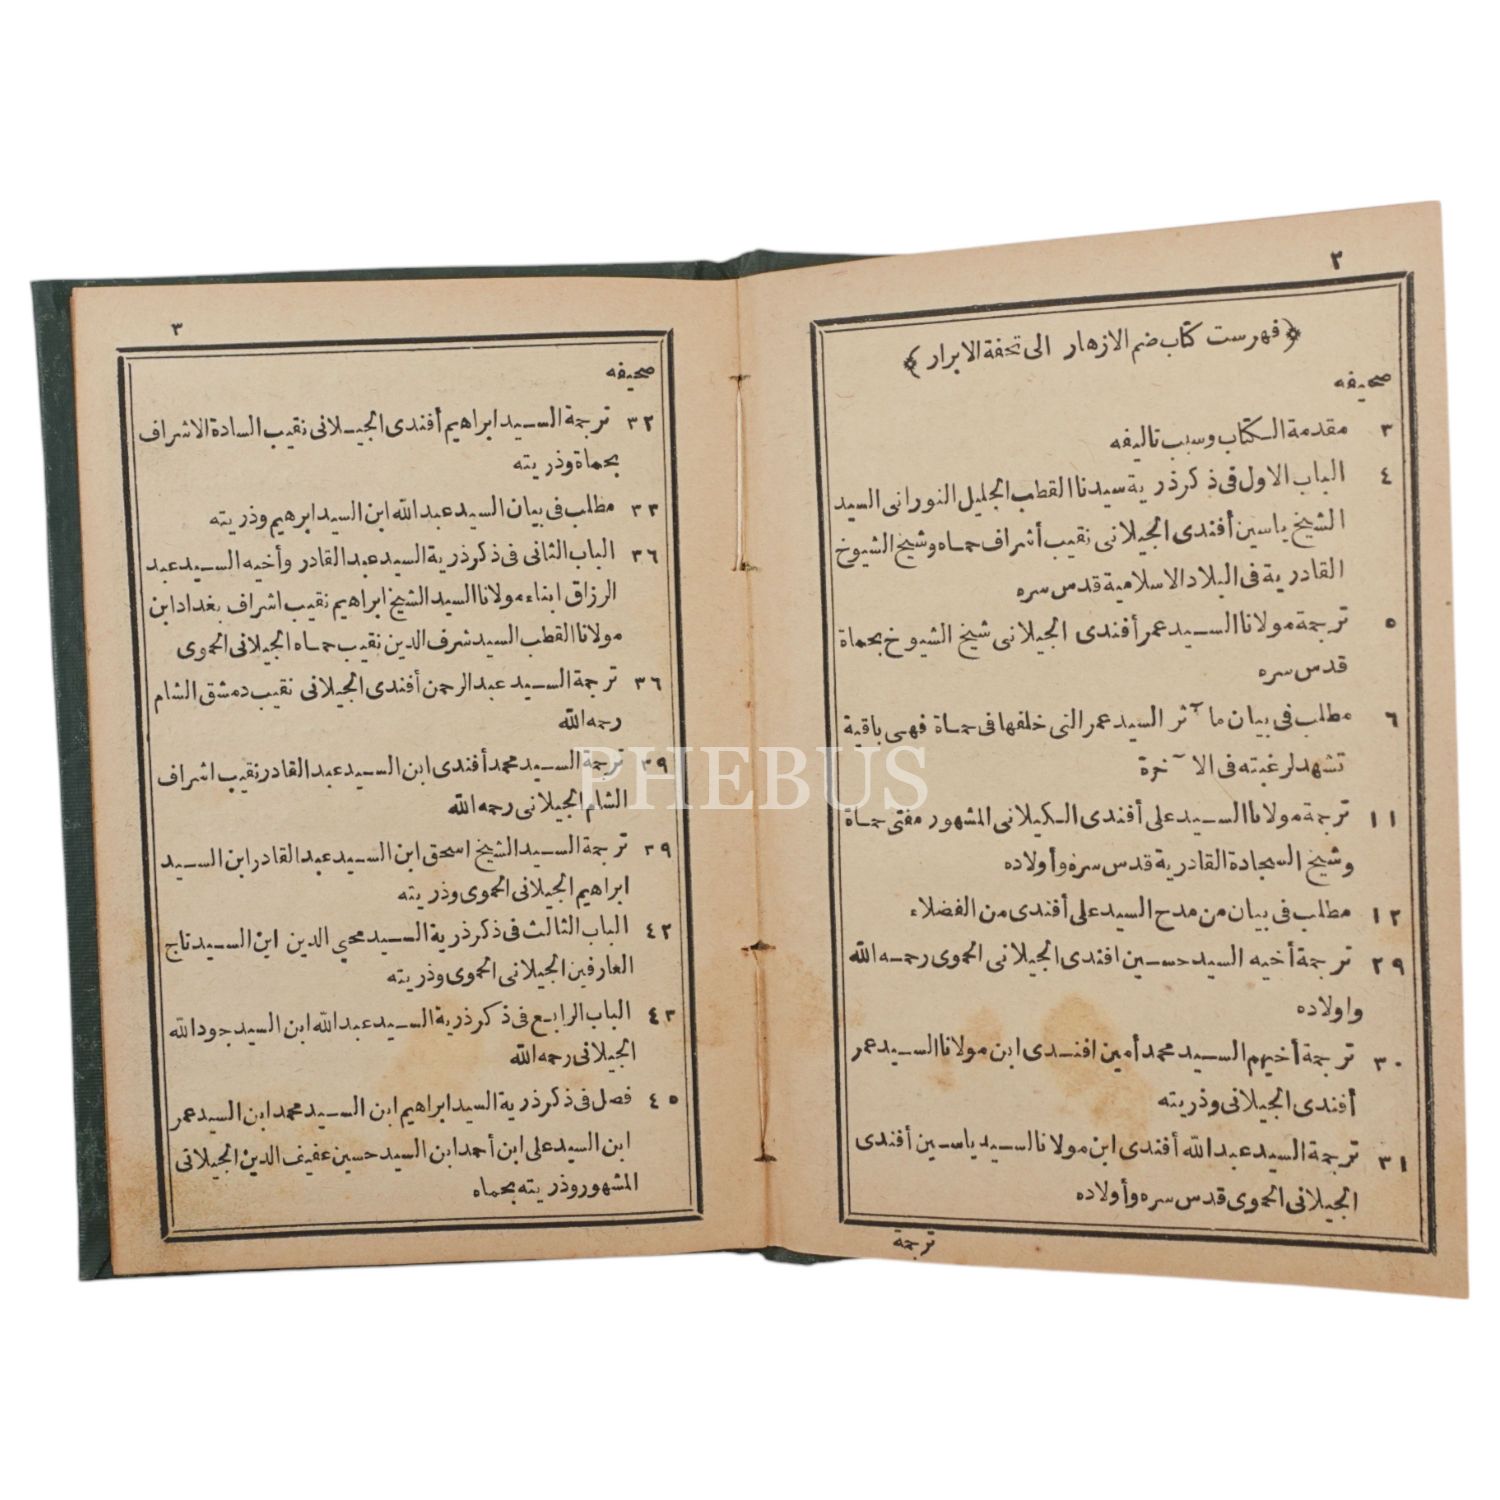 ٢
﴿فهرست كتاب ضم الازهار الى تحفة الابرار﴾
صحيفه
٣ مقدمة الكتاب وسبب تاليفه
٤ الباب الاول فى ذكر ذرية سيدنا القطب الجليل النورانى السيد
الشيخ ياسين أفندى الجيلانى نقيب أشراف حماه وشيخ الشيوخ
القادرية فى البلاد الاسلامية قدس سره
٥ ترجمة مولانا السيد عمر أفندى الجيلانى شيخ الشيوخ بحماة
قدس سره
٦ مطلب فى بيان مآثر السيد عمر التى خلفها فى حماة فهى باقية
تشهد لرغبته فى الآخرة
١١ ترجمة مولانا السيد على أفندى الكيلانى المشهور مفتى حماة
وشيخ السجادة القادرية قدس سره وأولاده
١٢ مطلب فى بيان من مدح السيد على أفندى من الفضلاء
٢٩ ترجمة أخيه السيد حسين افندى الجيلانى الحموى رحمه الله
واولاده
٣٠ ترجمة أخيهم السيد محمد أمين افندى ابن مولانا السيد عمر
أفندى الجيلانى وذريته
٣١ ترجمة السيد عبد الله أفندى ابن مولانا السيد ياسين أفندى
الجيلانى الحموى قدس سره وأولاده
ترجمة
٣
صحيفه
٣٢ ترجمة السيد ابراهيم أفندى الجيلانى نقيب السادة الاشراف
بحماة وذريته
٣٣ مطلب فى بيان السيد عبد الله ابن السيد ابرهيم وذريته
٣٦ الباب الثانى فى ذكر ذرية السيد عبد القادر وأخيه السيد عبد
الرزاق ابناء مولانا السيد الشيخ ابراهيم نقيب اشراف بغداد ابن
مولانا القطب السيد شرف الدين نقيب حماه الجيلانى الحموى
٣٦ ترجمة السيد عبد الرحمن أفندى الجيلانى نقيب دمشق الشام
رحمه الله
٣٩ ترجمة السيد محمد أفندى ابن السيد عبد القادر نقيب اشراف
الشام الجيلانى رحمه الله
٣٩ ترجمة السيد الشيخ اسحق ابن السيد عبد القادر ابن السيد
ابراهيم الجيلانى الحموى وذريته
٤٢ الباب الثالث فى ذكر ذرية السيد محيي الدين ابن السيد تاج
العارفين الجيلانى الحموى وذريته
٤٣ الباب الرابع فى ذكر ذرية السيد عبد الله ابن السيد جود الله
الجيلانى رحمه الله
٤٥ فصل فى ذكر ذرية السيد ابراهيم ابن السيد محمد ابن السيد عمر
ابن السيد على ابن أحمد ابن السيد حسين عفيف الدين الجيلانى
المشهور وذريته بحماه
PHEBUS